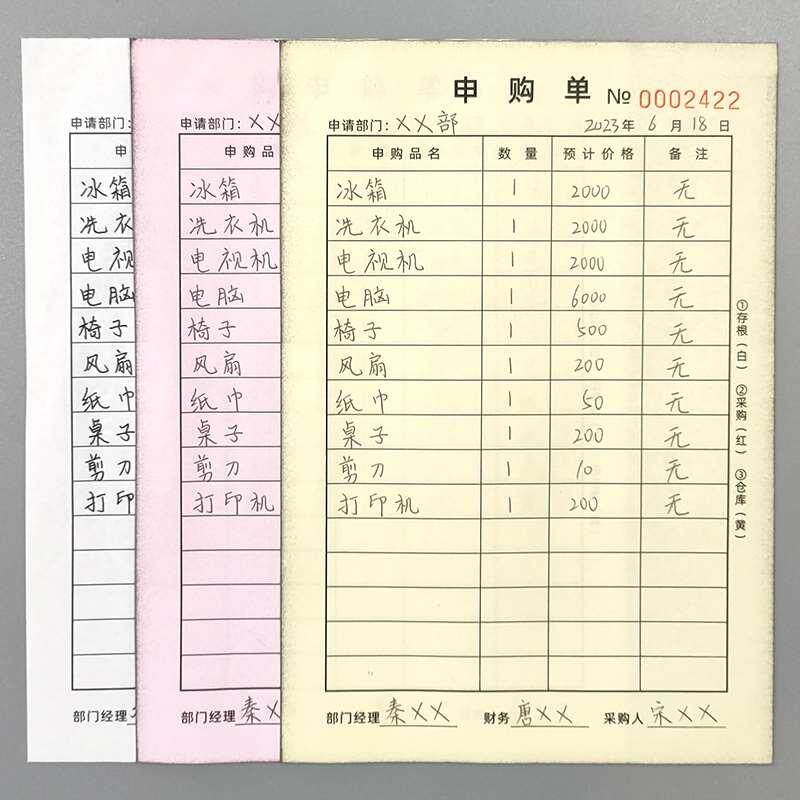 申购单 № 0002422
申请部门：××部 2023年 6月 18日
申购品名 数量 预计价格 备注
冰箱 1 2000 无
洗衣机 1 2000 无
电视机 1 2000 无
电脑 1 6000 无
椅子 1 500 无
风扇 1 200 无
纸巾 1 50 无
桌子 1 200 无
剪刀 1 10 无
打印机 1 200 无
部门经理 秦×× 财务 唐×× 采购人 宋××
①存根（白） ②采购（红） ③仓库（黄）
申请部门：××
申购品
冰箱
洗衣机
电视机
电脑
椅子
风扇
纸巾
桌子
剪刀
打印机
部门经理 秦×
申请部门：
申
冰箱
洗衣
电视
电脑
椅子
风扇
纸巾
桌子
剪刀
打印
部门经理